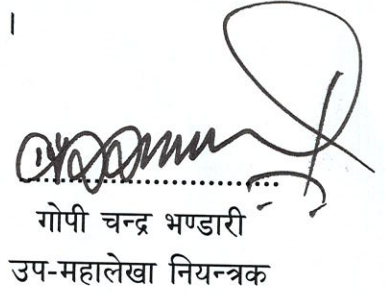 ।
गोपी चन्द्र भण्डारी
उप-महालेखा नियन्त्रक